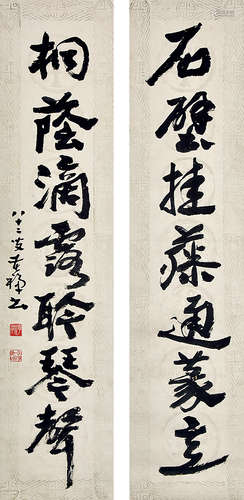 石壁挂藤通篆意
桐荫滴露聆琴声
八十二叟
书